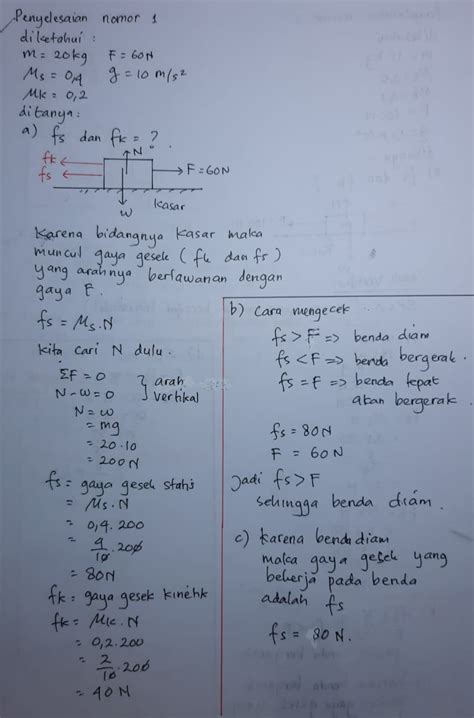 Penyelesaian nomor 1
diketahui :
m = 20 kg F = 60N
Ms = 0,4 g = 10 m/s²
Mk = 0,2
ditanya :
a) fs dan fk = ?
N
fk
fs
F = 60N
w
kasar
Karena bidangnya kasar maka
muncul gaya gesek ( fk dan fs )
yang arahnya berlawanan dengan
gaya F.
fs = Ms . N
kita cari N dulu.
ΣF = 0
N - w = 0
} arah vertikal
N = w
= mg
= 20.10
= 200 N
fs = gaya gesek statis
= Ms . N
= 0,4 . 200
= 4/10 . 200
= 80N
fk = gaya gesek kinetik
fk = Mk . N
= 0,2 . 200
= 2/10 . 200
= 40 N
b) Cara mengecek
fs > F => benda diam
fs < F => benda bergerak.
fs = F => benda tepat
akan bergerak.
fs = 80N
F = 60 N
Jadi fs > F
sehingga benda diam.
c) karena benda diam
maka gaya gesek yang
bekerja pada benda
adalah fs
fs = 80 N.